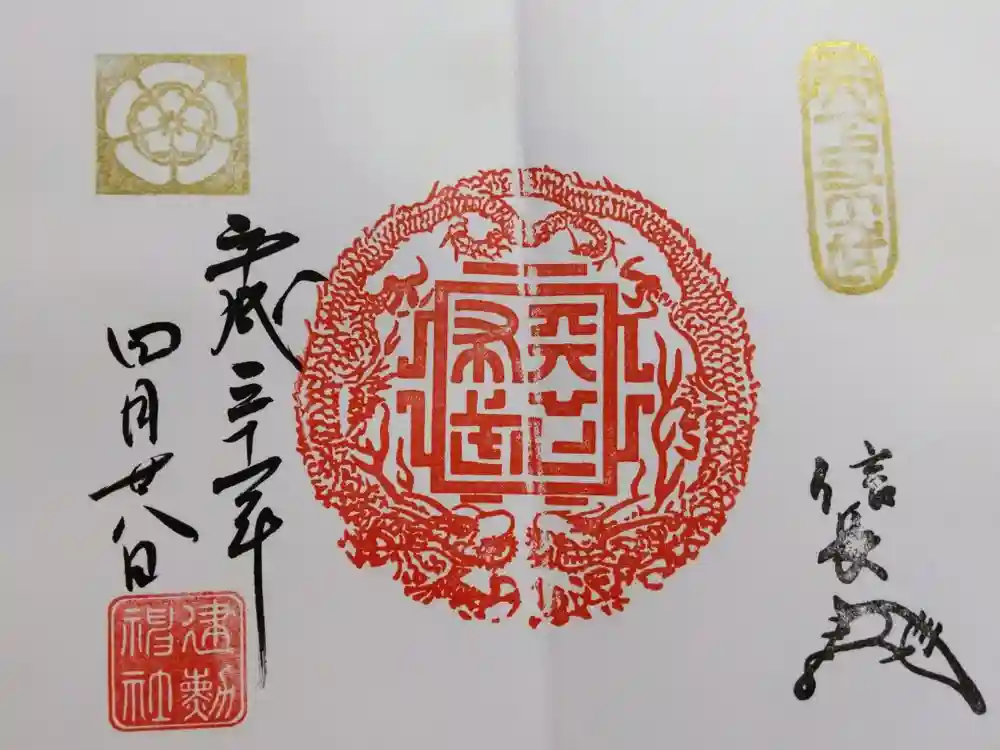 天下布武
信長
平成三十一年
四月廿八日
建勲
神社